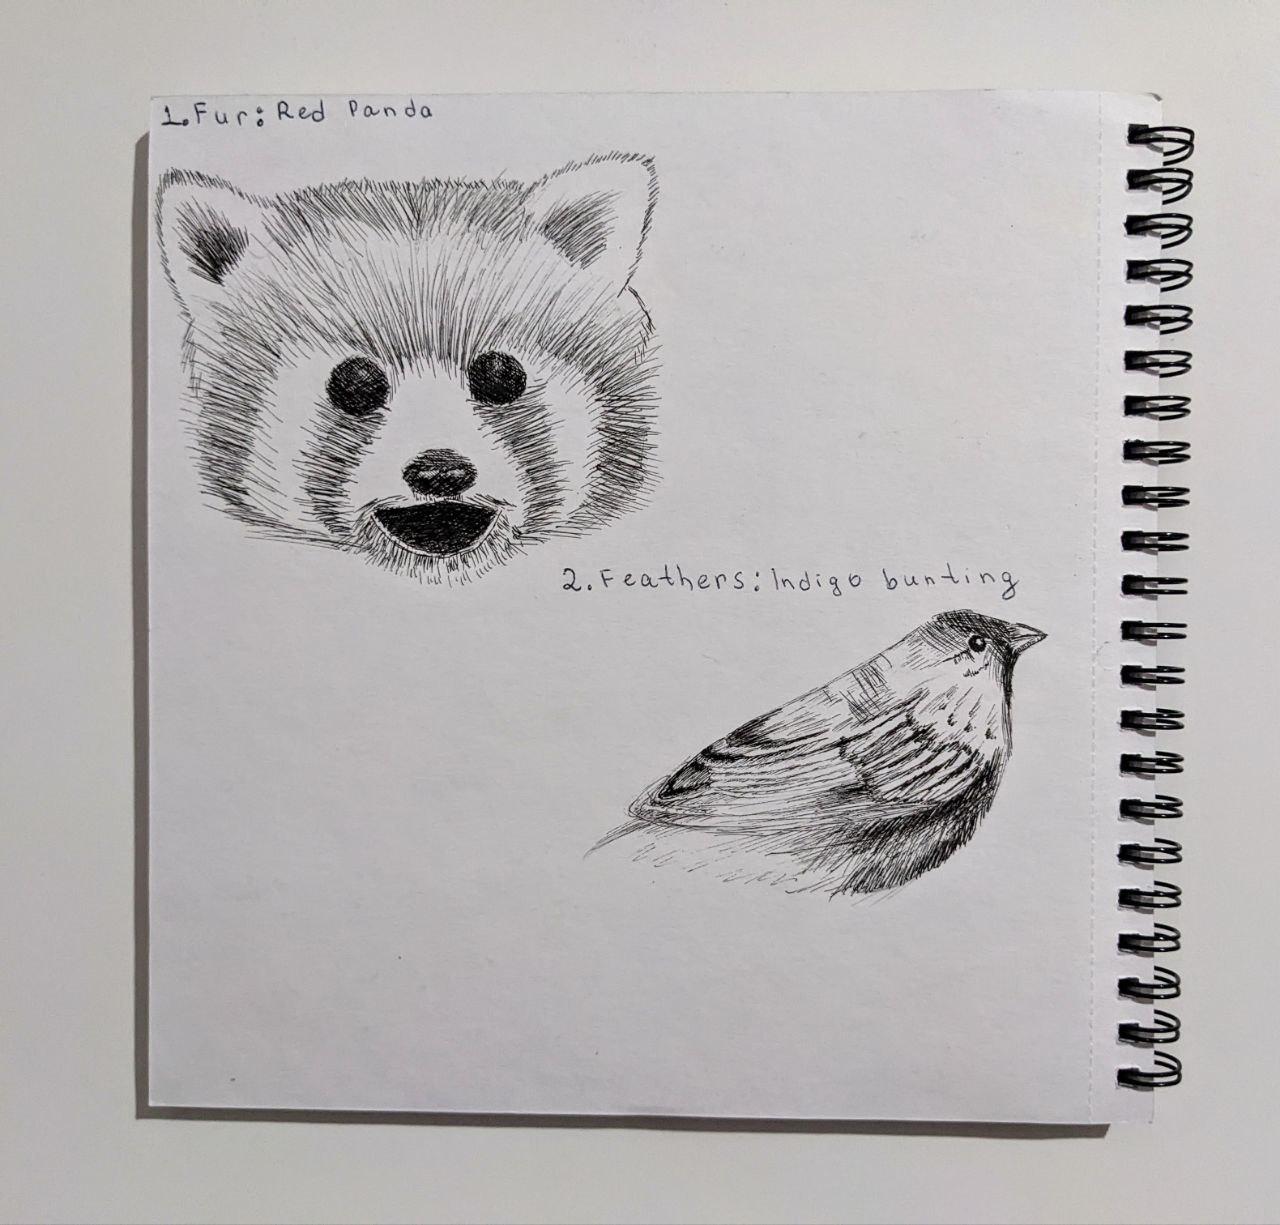 1. Fur: Red Panda
2. Feathers: Indigo bunting